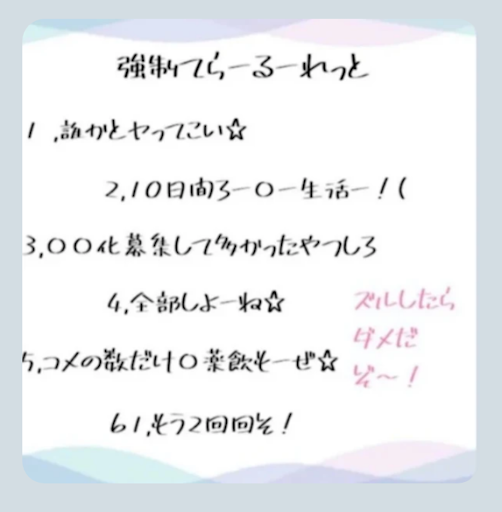 強制てらーるーれっと
1 ,誰かとヤってこい☆
2,10日間ろー〇ー生活ー!(
3,〇〇化募集して多かったやつしろ
4,全部しよーね☆
5,コメの数だけ〇薬飲もーぜ☆
61,もう2回回そ!
ズルしたら
ダメだ
ぞ〜!